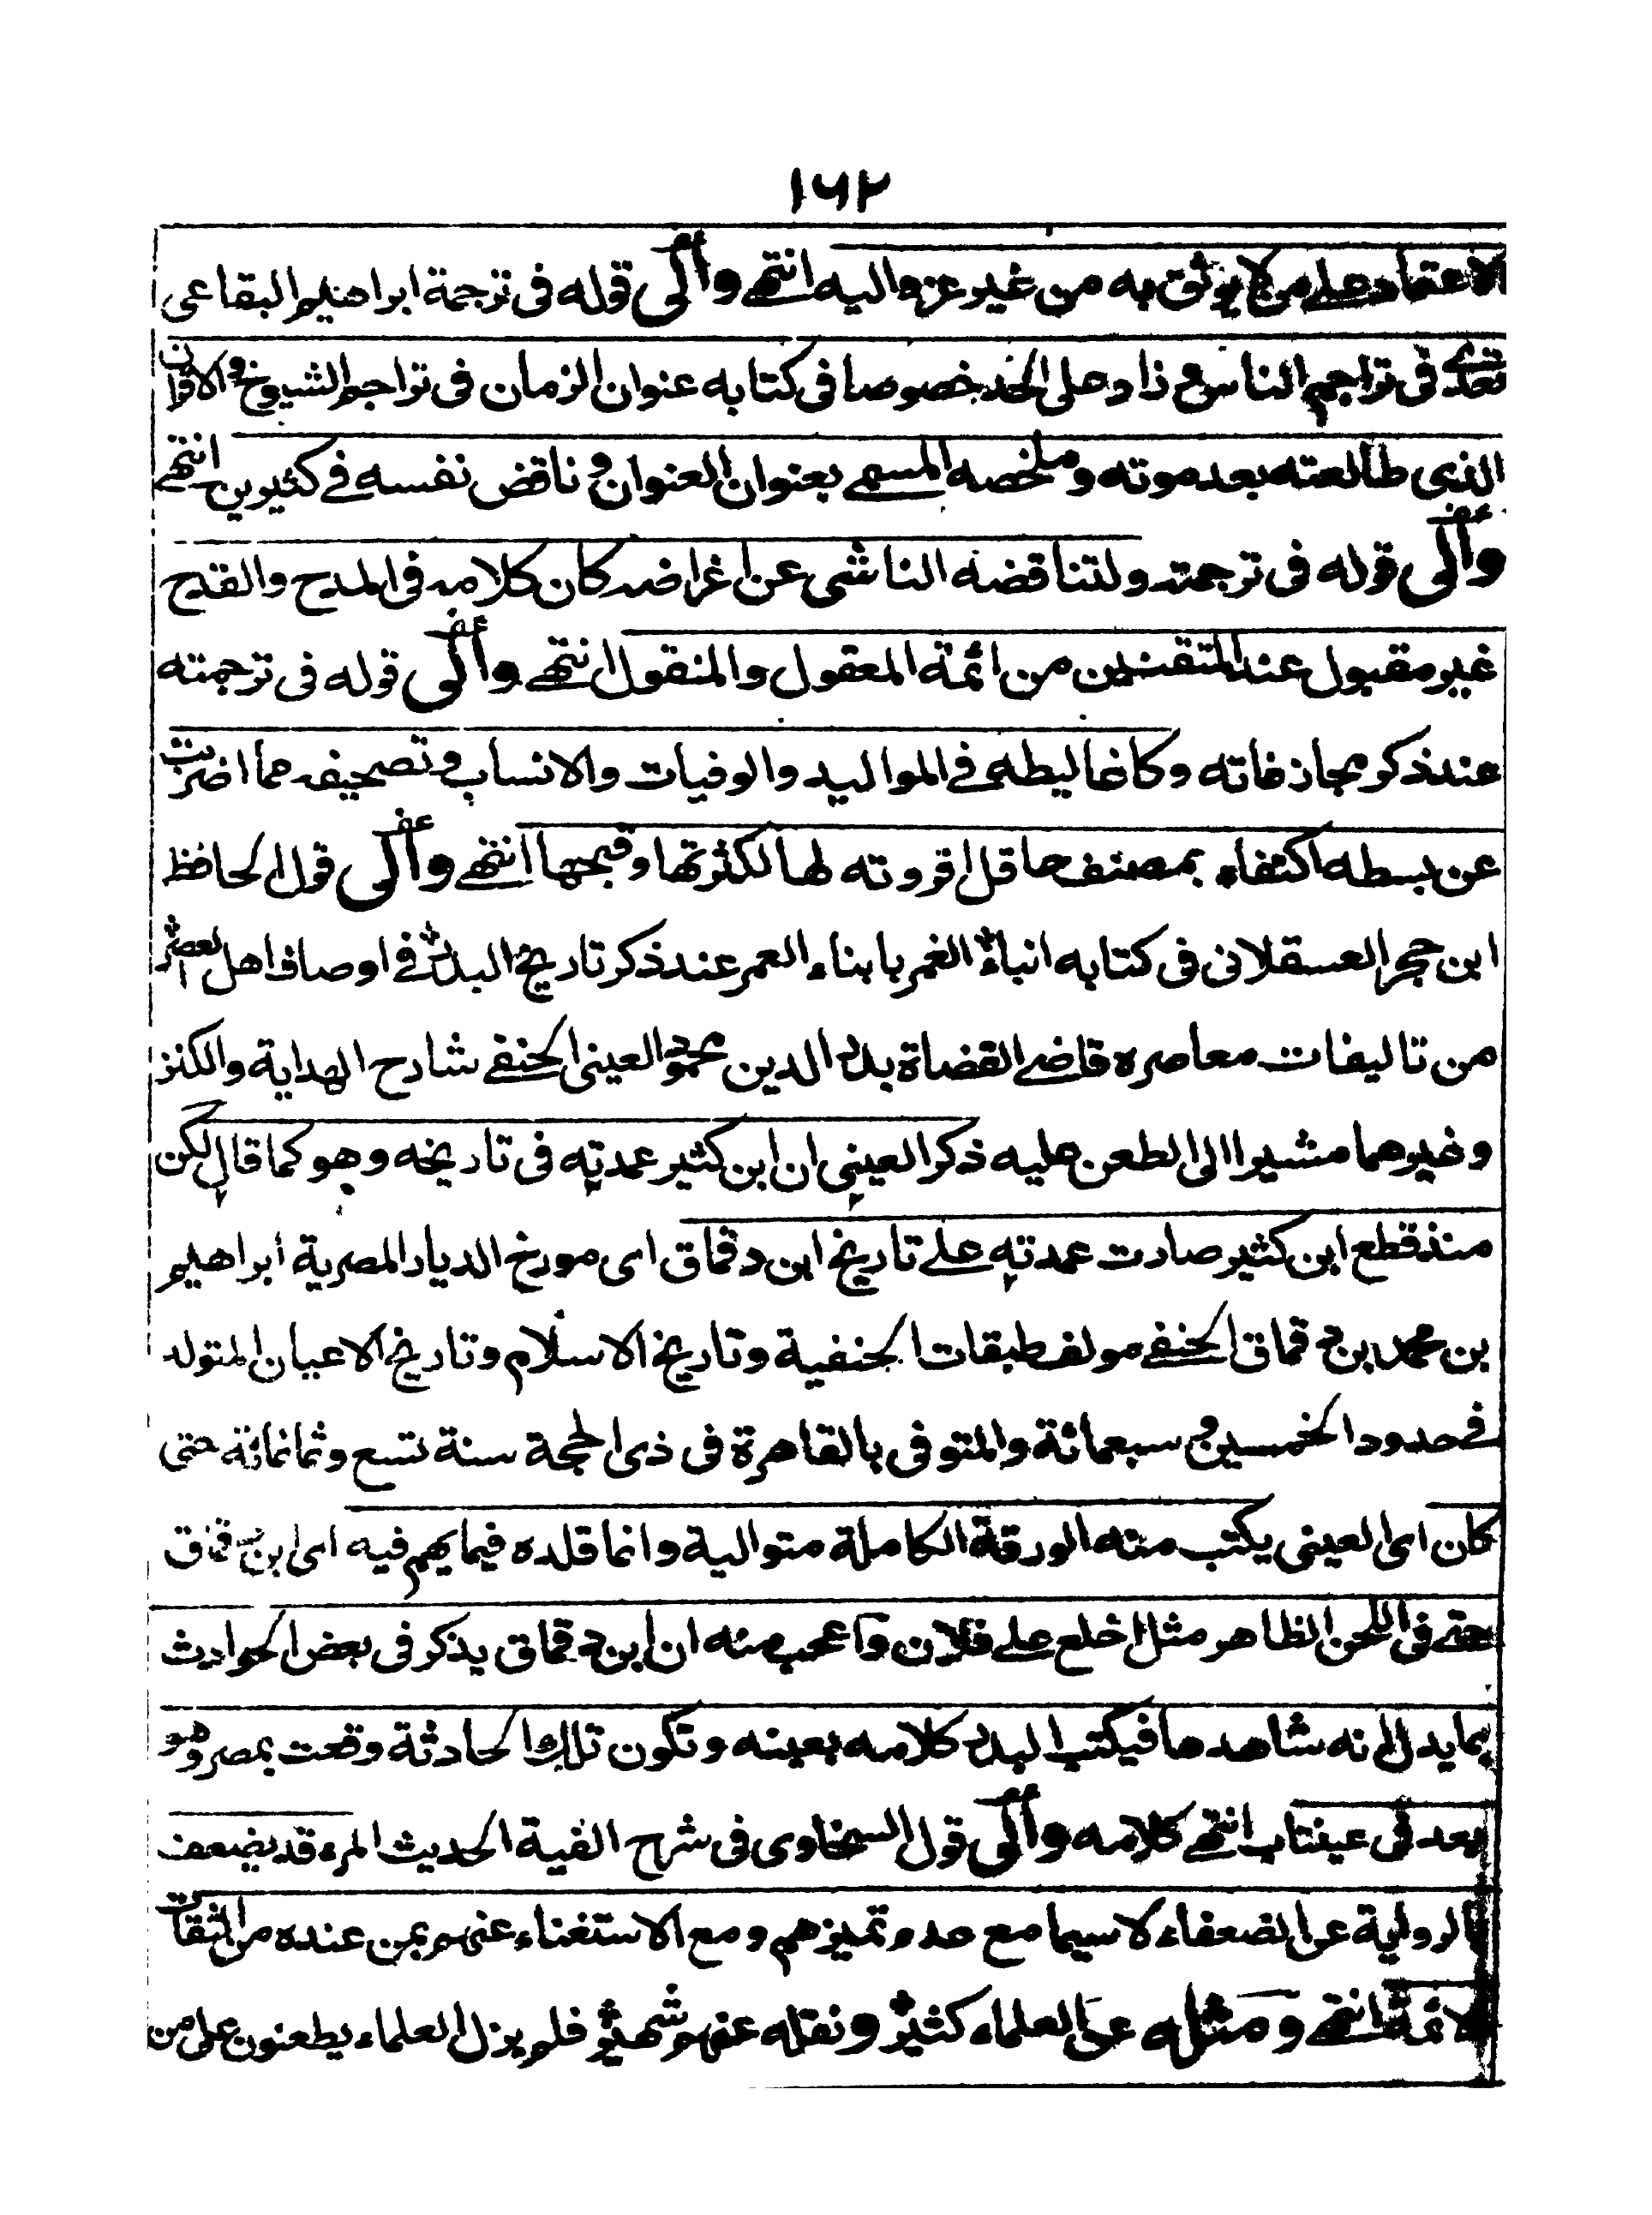 ١٦٢
الاعتماد على من لا يوثق به من غير عزو اليه انتهى وألى قوله فى ترجمة ابراهيم البقاعى
تعدى فى تراجم الناس وزاد على الحد خصوصا فى كتابه عنوان الزمان فى تراجم الشيوخ والاقران
الذى طالعته بعد موته وملخصه المسمى بعنوان العنوان وناقض نفسه فى كثيرين انتهى
وألى قوله فى ترجمته ولتناقضه الناشى عن اغراضه كان كلامه فى المدح والقدح
غير مقبول عند المتقنين من ائمة المعقول والمنقول انتهى وألى قوله فى ترجمته
عند ذكر مجازفاته وكاغاليطه فى المواليد والوفيات والانساب وتصحيفه مما اضربت
عن بسطه اكتفاء بمصنف حافل افردته لها لكثرتها وقبحها انتهى وألى قول الحافظ
ابن حجر العسقلانى فى كتابه انباء الغمر بابناء العمر عند ذكر تاريخ البدر فى اوصاف اهل العصر
من تاليفات معاصره قاضى القضاة بدر الدين محمود العينى الحنفى شارح الهداية والكنز
وغيرهما مشيرا الى الطعن عليه ذكر العينى ان ابن كثير عمدته فى تاريخه وهو كما قال لكن
منذ قطع ابن كثير صارت عمدته على تاريخ ابن دقماق اى مورخ الديار المصرية ابراهيم
بن محمد بن دقماق الحنفى مولف طبقات الحنفية وتاريخ الاسلام وتاريخ الاعيان المتولد
فى حدود الخمسين وسبعمائة والمتوفى بالقاهرة فى ذى الحجة سنة تسع وثمانمائة حتى
كان اى العينى يكتب منه الورقة الكاملة متوالية وانما قلده فيما يهم فيه اى ابن دقماق
حتى فى اللحن الظاهر مثل اخلع على فلان واعجب منه ان ابن دقماق يذكر فى بعض الحوادث
بما يدل انه شاهدها فيكتب البدر كلامه بعينه وتكون تلك الحادثة وقعت بمصر وهو
بعد فى عينتاب انتهى كلامه وألى قول السخاوى فى شرح الفية الحديث المرء قد يضعف
بالرواية عن الضعفاء لا سيما مع عدم تميزهم ومع الاستغناء عنهم بمن عنده من الثقات
الائمة انتهى ومثله عن العلماء كثير ونقله عنهم شهير فلم يزل العلماء يطعنون على من